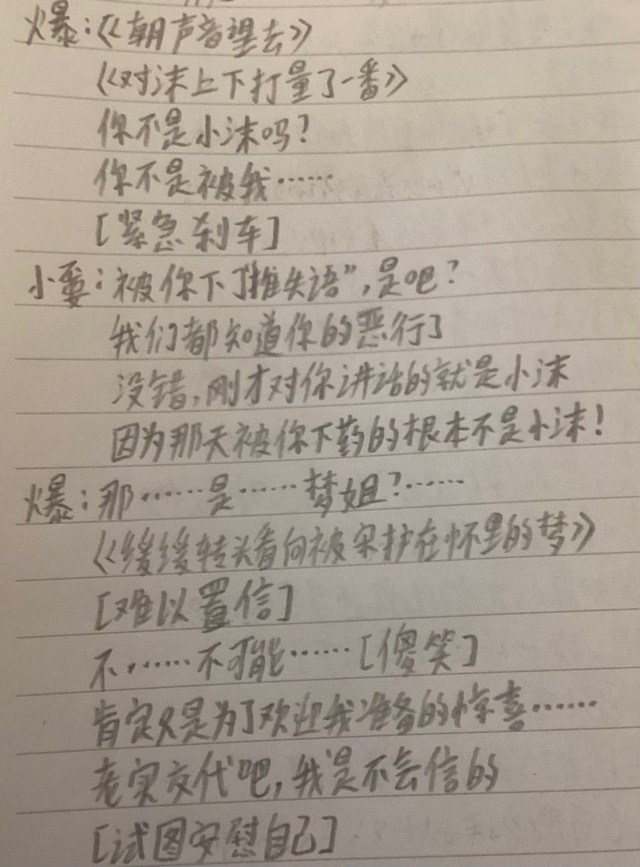 爆:《《朝声音望去》》
《《对沫上下打量了一番》》
你不是小沫吗?
你不是被我……
[紧急刹车]
小要:被你下了"推失语",是吧?
我们都知道你的恶行]
没错,刚才对你讲话的就是小沫
因为那天被你下药的根本不是小沫!
爆:那……是……梦姐?……
《《缓缓转头看向被宋护在怀里的梦》》
[难以置信]
不……不可能……[傻笑]
肯定又是为了欢迎我准备的惊喜……
老实交代吧,我是不会信的
[试图安慰自己]